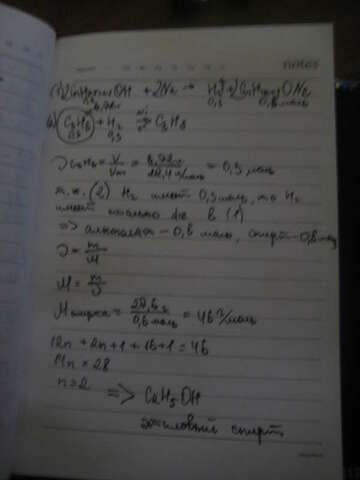 1) 2CnH2n+1OH + 2Na → H2 + 2CnH2n+1ONa
0,3 0,6 моль
2) C3H6 + H2 → C3H8
0,3 0,3
νC3H6 = V/Vm = 6,72 л/22,4 л/моль = 0,3 моль
т.к. (2) H2 имеет 0,3 моль, то H2
имеет столько же в (1)
=> алкоголят – 0,6 моль, спирт – 0,6 моль
ν = m/M
M = m/ν
M спирта = 27,6 г/0,6 моль = 46 г/моль
12n + 2n + 1 + 16 + 1 = 46
14n = 28
n = 2 => C2H5OH
этиловый спирт